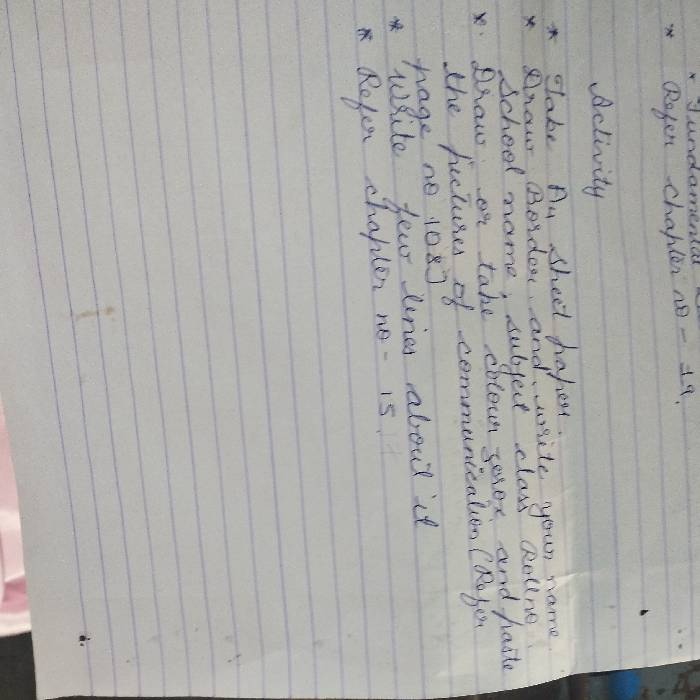 * Fundamental
* Refer chapter no - 19.
Activity
* Take A4 sheet paper.
* Draw Border and write your name.
School name, subject class Rollno.
* Draw or take colour zerox and paste
the pictures of communication (Refer
page no 108)
* Write few lines about it
* Refer chapter no - 15